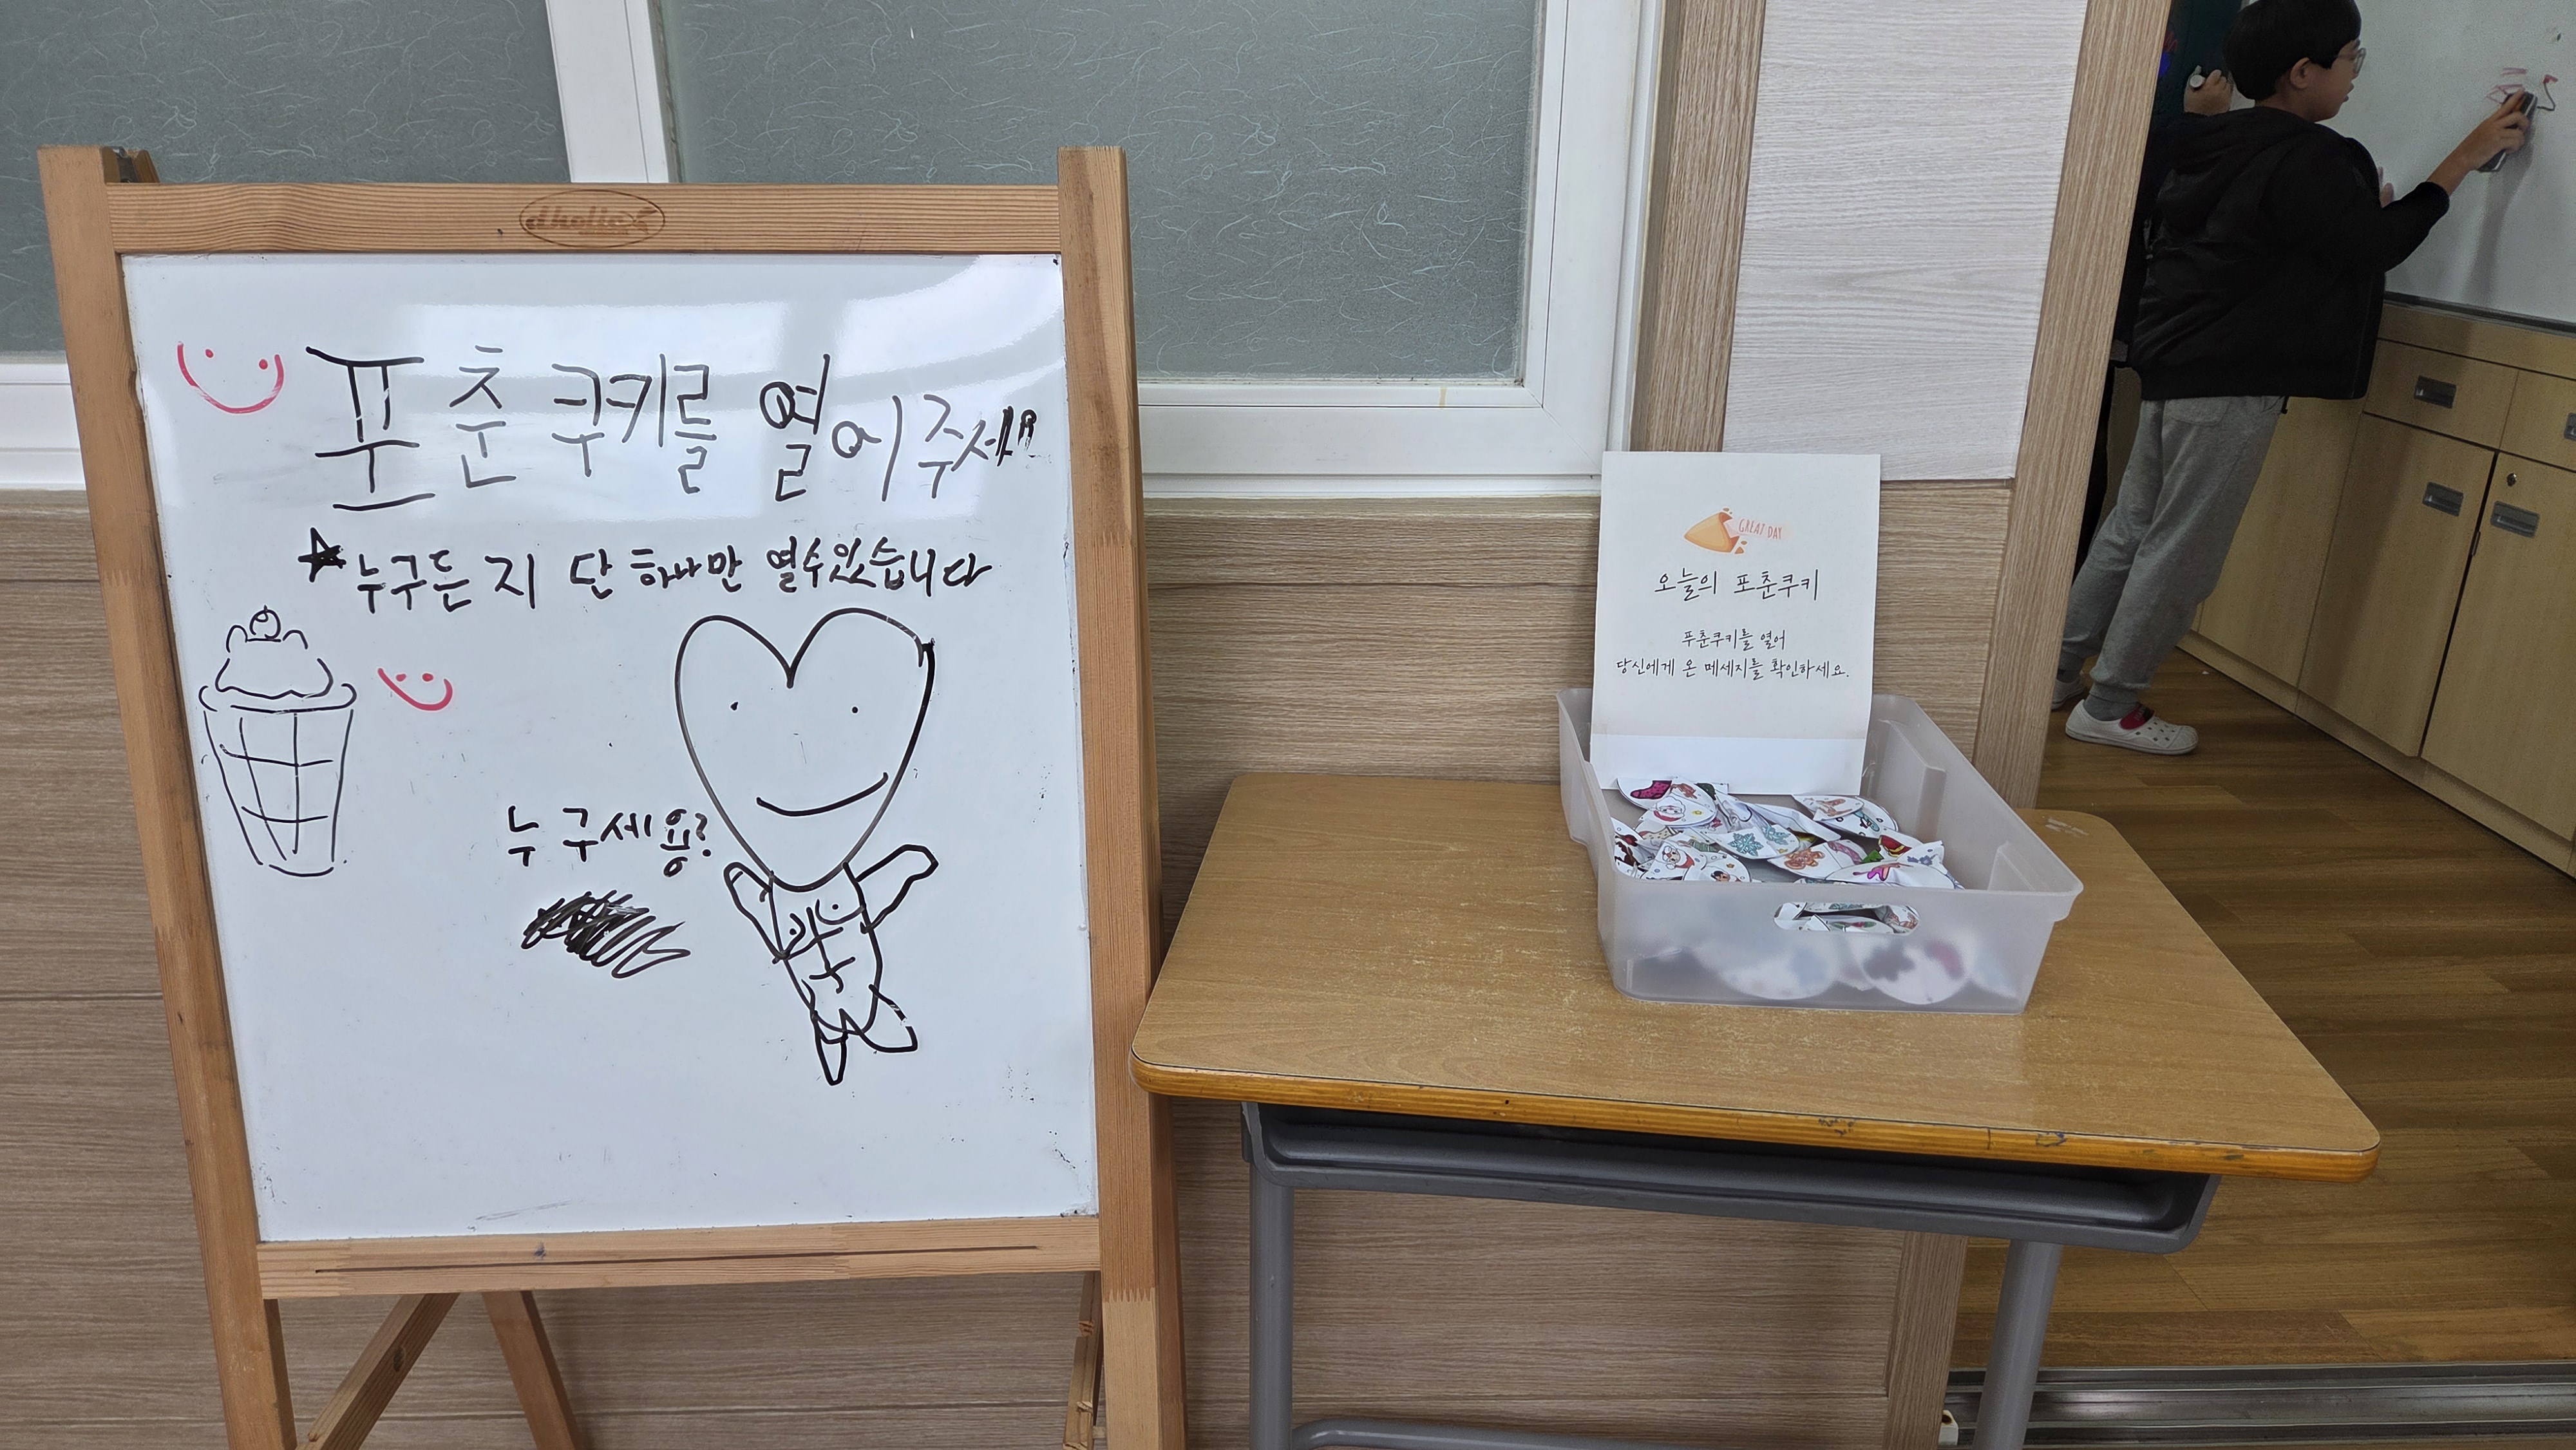 포춘쿠키를 열어주세요
★누구든지 단 하나만 열수있습니다
누구세용?
GREAT DAY
오늘의 포춘쿠키
푸춘쿠키를 열어
당신에게 온 메세지를 확인하세요.